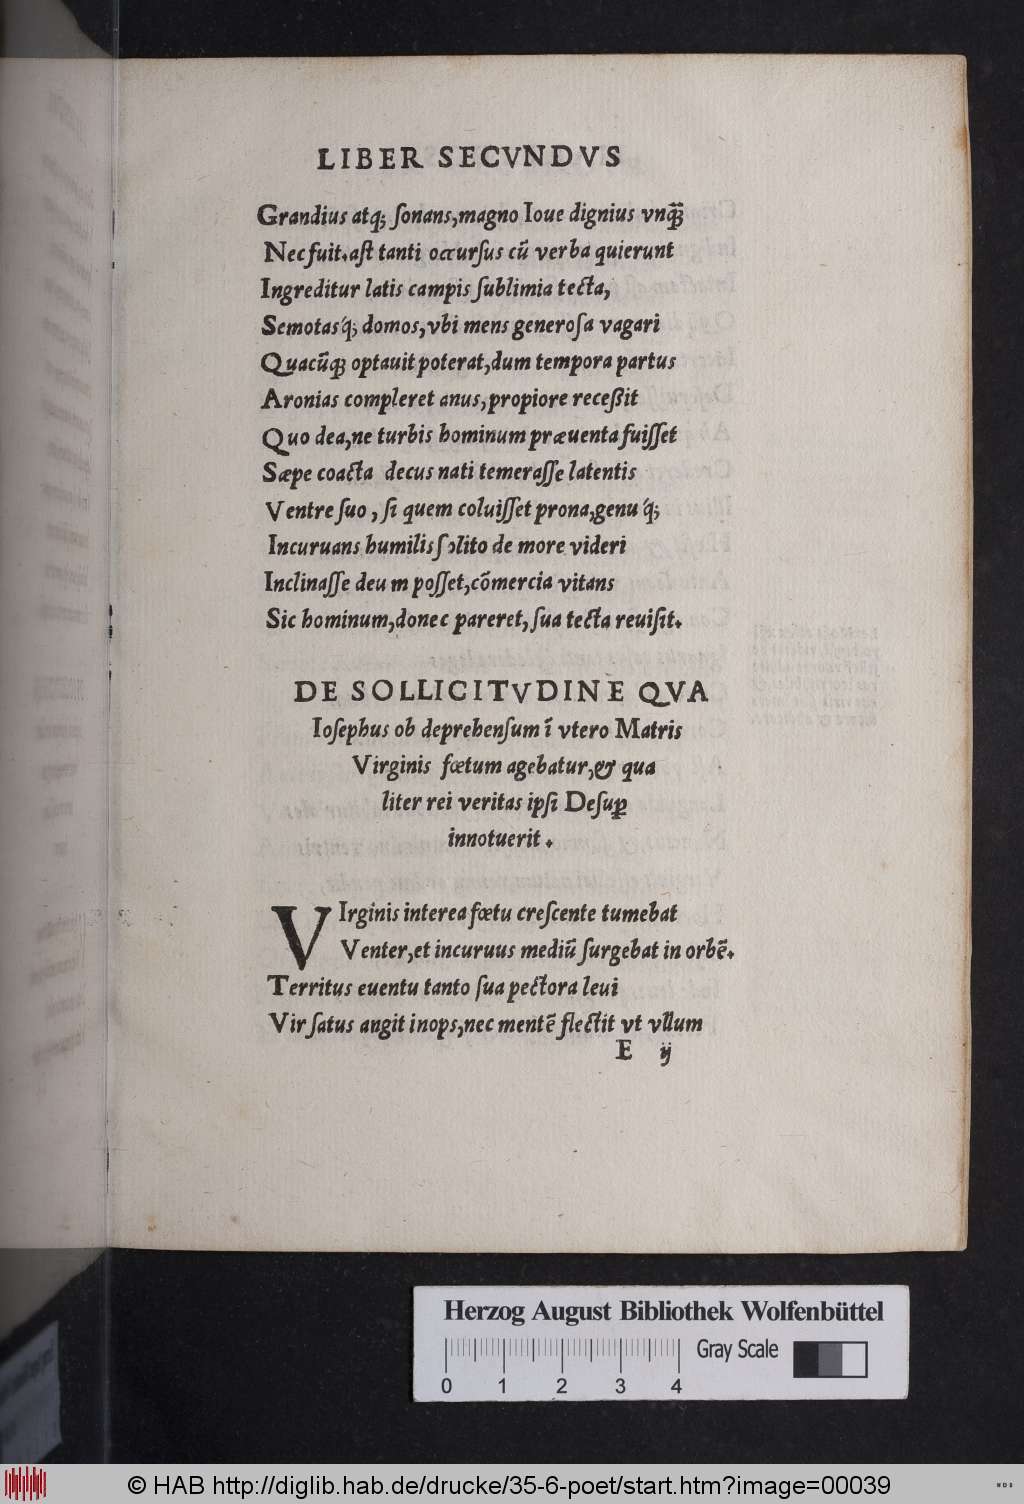 LIBER SECVNDVS
Grandius atq; ſonans,magno Ioue dignius vnq̃ꝫ
Nec fuit.aſt tanti occurſus cũ verba quierunt
Ingreditur latis campis ſublimia tecta,
Semotas'q; domos,vbi mens generoſa vagari
Quacũqꝫ optauit poterat,dum tempora partus
Aronias compleret anus,propiore receßit
Quo dea,ne turbis hominum præuenta fuiſſet
Sæpe coacta decus nati temeraſſe latentis
Ventre ſuo , ſi quem coluiſſet prona,genu'q;
Incuruans humilis ſolito de more videri
Inclinaſſe deu m poſſet,cõmercia vitans
Sic hominum,donec pareret, ſua tecta reuiſit.
DE SOLLICITVDINE QVA
Ioſephus ob deprehenſum ĩ vtero Matris
Virginis fœtum agebatur,& qua
liter rei veritas ipſi Deſuꝑ
innotuerit .
VIrginis interea fœtu creſcente tumebat
Venter,et incuruus mediũ ſurgebat in orbẽ.
Territus euentu tanto ſua pectora leui
Vir ſatus angit inops,nec mentẽ flectit vt vllum
E ij
Herzog August Bibliothek Wolfenbüttel
Gray Scale
0 1 2 3 4
© HAB http://diglib.hab.de/drucke/35-6-poet/start.htm?image=00039